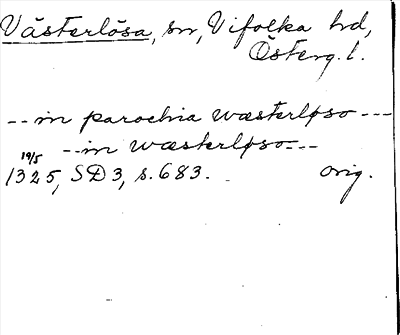 Västerlösa, sn, Vifolka hd,
Österg. l.
-- in parochia wæsterløso ---
-- in wæsterløso ---
19/5
1325, SD 3, s. 683. orig.